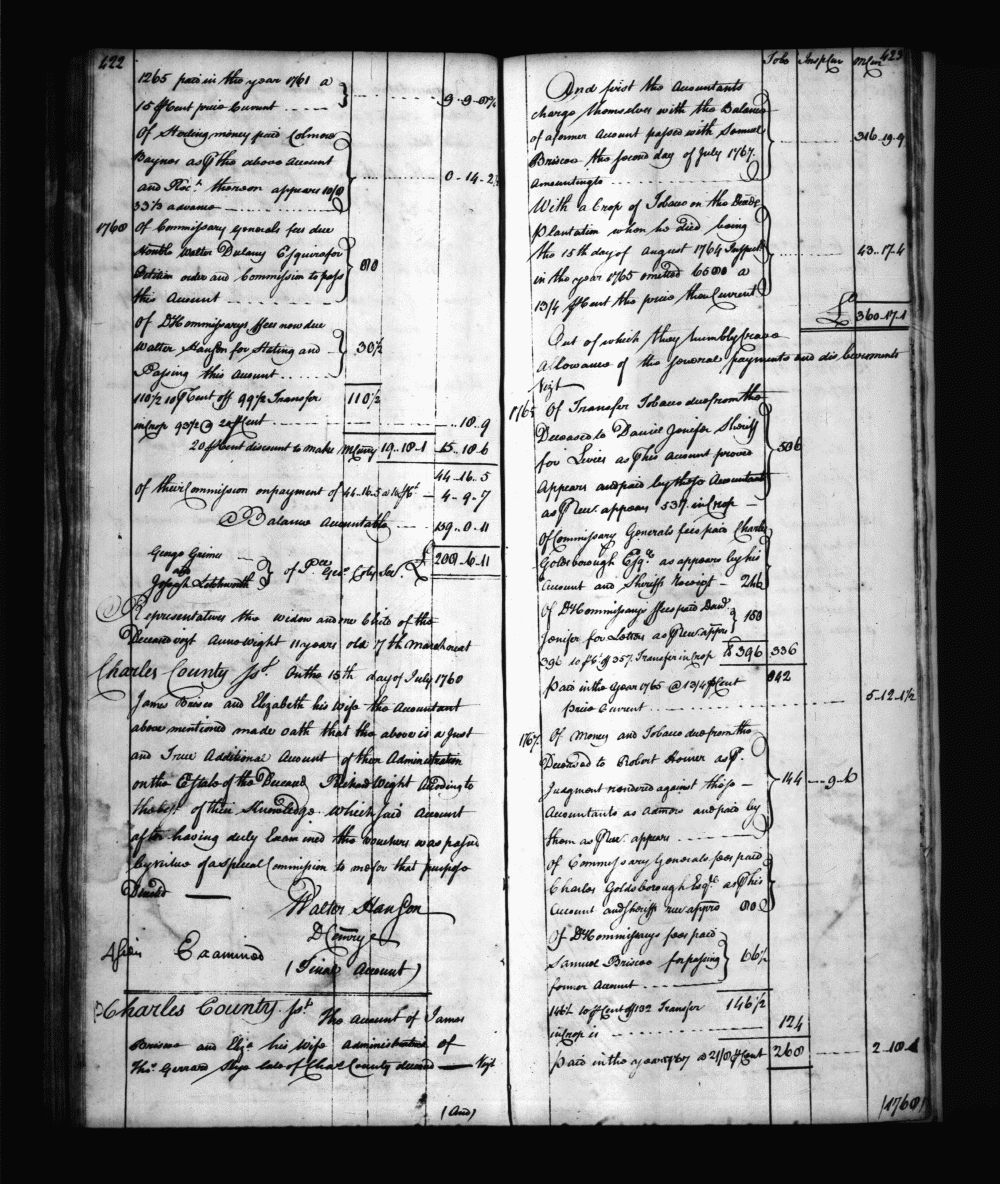 422
1265 paid in the year 1761 a
15 ⅌ Cent price Current 9..9..
Of Sterling money paid Colmore
Baynes as ⅌ the above Account
and Rec.t thereon appears 10/8
33⅓ advance 0-14-2
1760 Of Commissary Generals fees due
Honble Walter Dulany Esquire for
Petition order and Commission to pass
this Account 80
Of D Commissarys ffees now due
Walter Hanson for Stating and
Passing this Account 30½
110½ 10 ⅌ Cent off 99½ Transfer 110½
in Crop 93½ @ ⅌ Cent ..18..9
20 ⅌ Cent discount to make 19..10..1 15..10..6
44..16..5
of their Commission on payment of 44..16..5 a 10 ⅌ Ct 4-9-7
Balance Accountable 159..0..11
George Grimes
and
Joseph
of P.ce Geo.s Coty £ 208..6..11
Representatives the widow and one Child of the
Deceased vizt Anne Wight 11 years old 7th March next
Charles County ss.t On the 15th day of July 1768
James Brisco and Elizabeth his Wife the Accountant
above mentioned made oath that the above is a Just
and True Additional Account of their Administration
on the Estate of the Deceased Richard Wight According to
the best of their Knowledge which said Account
after having duly Examined the vouchers was passed
by virtue of a special Commission to me for that purpose
Directed
Walter Hanson
D Comry
Examined
(Final Account)
Charles County ss.t The Account of James
Briscoe and Eliz.a his Wife Administratrix of
Tho.s Gerrard Slye late of Char County deceased Vizt
(And)
423
Tobo Inspion Mony
And first the Accountants
charge themselves with the Balance
of a former Account passed with Samuel
Briscoe the second day of July 1767.
Amounting to 316..19..9
With a Crop of Tobacco on the Dead's
Plantation when he died being
the 15th day of August 1764 Inspected
in the year 1765 omitted 6500 a
13/4 ⅌ Cent the price then Current 43..17..4
£ 360..17..1
Out of which they humbly crave
Allowance of the several payments and disbursments
Vizt
1765 Of Transfer Tobacco due from the
Deceased to Daniel Jenifer Sheriff
for Levies as ⅌ his Account proved
Appears and paid by those Accountants
as ⅌ Rec.t appears 537 in Crop 506
Of Commissary Generals fees paid Charles
Goldsborough Esq.r as appears by his
Account and Sheriffs Receipt 246
Of D Commissarys ffees paid Dan.l
Jenifer for Letters as ⅌ Rec.t appears 150
396 10 ⅌ Ct off 357. Transfer in Crop 396 336
842
paid in the year 1765 @ 13/4 ⅌ Cent
price Current 5..12..1½
1767. Of Money and Tobacco due from the
Deceased to Robert Horner as ⅌
Judgment rendered against those
Accountants as Admors and paid by
them as ⅌ Rec.t appears 144 9..6
Of Commissary Generals fees paid
Charles Goldsborough Esq.r as ⅌ his
Account and Sheriffs rec.t appears 80
Of D Commissarys fees paid
Samuel Briscoe for passing
former Account 66½
146½ 10 ⅌ Cent off 132 Transfer 146½
in Crop is 124
paid in the year 1767 @ 21/8 ⅌ Cent 268 2..18..1
(1768)